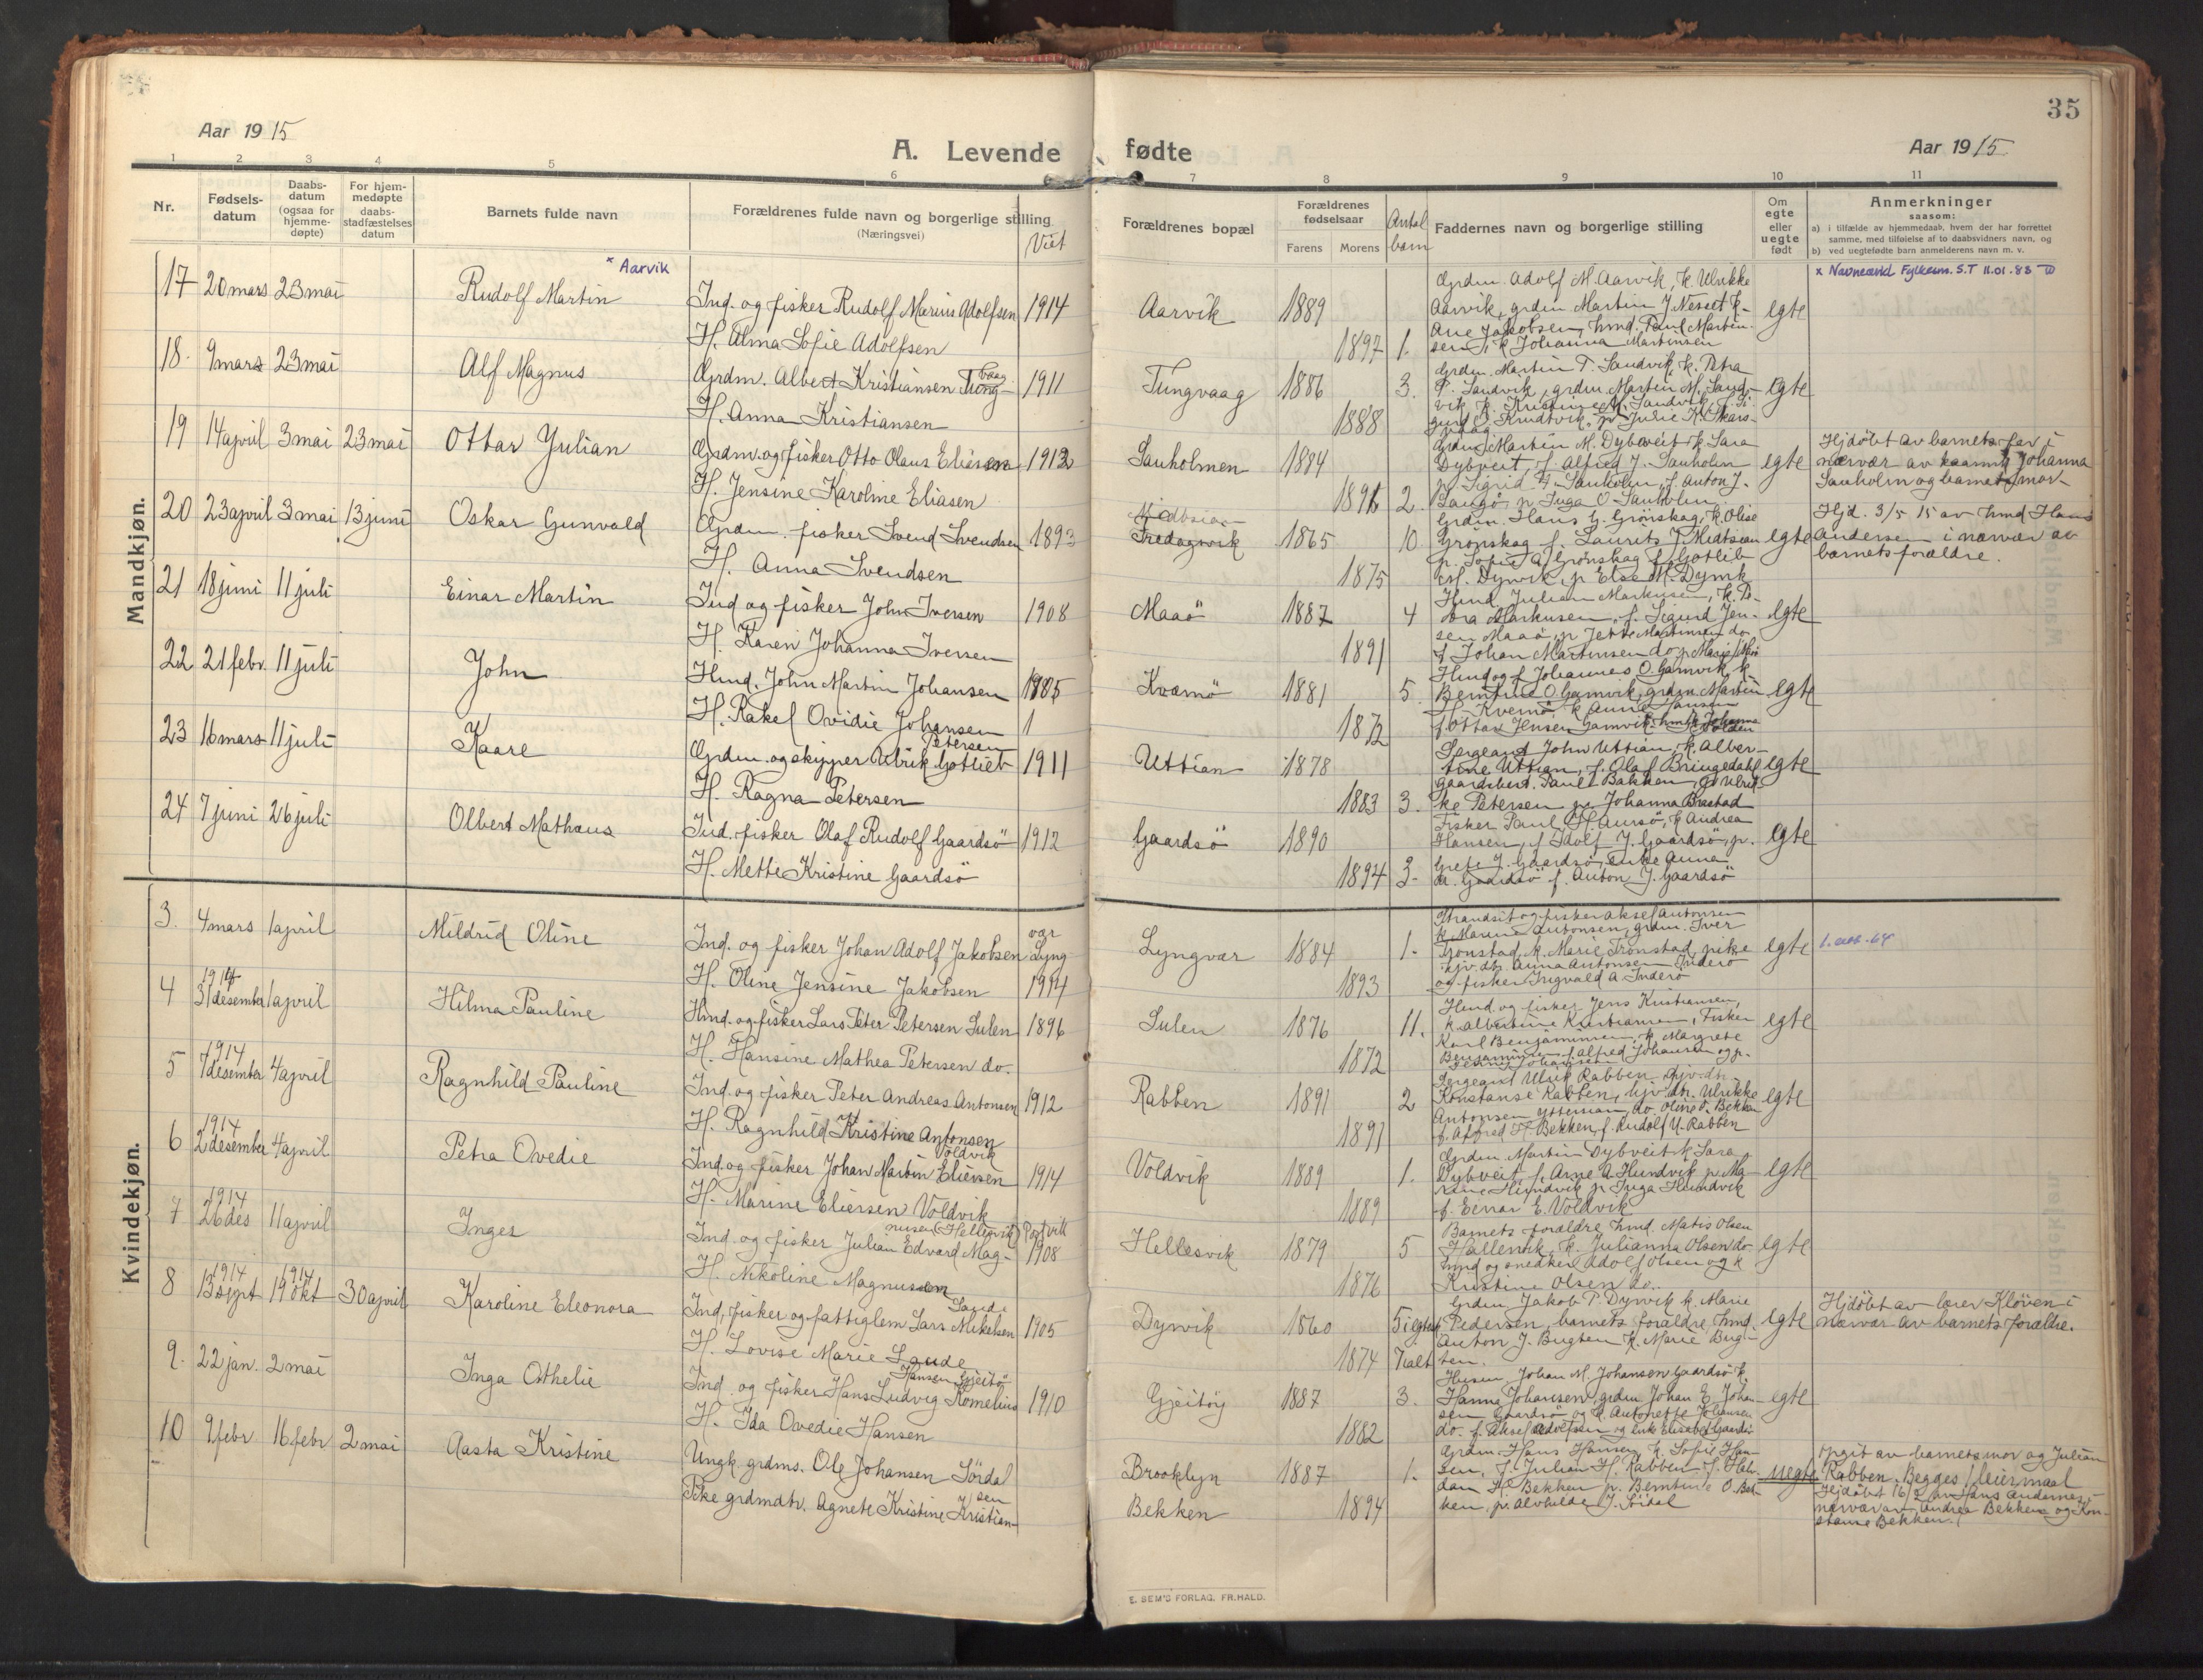 35
Aar 1915
A. Levende fødte
Aar 1915
1 2 3 4 5 6 7 8 9 10 11
Nr.
Fødsels-
datum
Daabs-
datum
(ogsaa for
hjemme-
døpte)
For hjem-
medøpte
daabs-
stadfæstelses
datum
Barnets fulde navn
Forældrenes fulde navn og borgerlige stilling
(Næringsvei)
Viet
Forældrenes bopæl
Forældrenes
fødselsaar
Farens Morens
Antal
barn
Faddernes navn og borgerlige stilling
Om
egte
eller
uegte
født
Anmerkninger
saasom:
a) i tilfælde av hjemmedaab, hvem der har forrettet
samme, med tilføielse af to daabsvidners navn, og
b) ved uegtefødte barn anmelderens navn m. v.
Mandkjøn.
17 20 mars 23 mai Rudolf Martin x Aarvik
Ind. og fisker Rudolf Marius Adolfsen 1914
H. Alma Sofie Adolfsen
Aarvik 1889 1897 1.
Grdm. Adolf M. Aarvik, k. Ulrikke
Aarvik, grdm Martin J. Nesset k.
Ane Jakobsen, hmd. Paul Martin-
sen, k. Johanna Martinsen
egte
x Navneavid Fylkesm. S.T 11.01.83
18. 9 mars 23 mai Alf Magnus
Grdm. Albert Kristiansen Tung-
vaag 1911
H. Anna Kristiansen
Tungvaag 1886 1888 3.
Grdm. Martin P. Sandvik, k. Petra
P. Sandvik, grdm. Martin M. Sand-
vik, k. Kristine M. Sandvik, f. Si-
gurd O. Knudtvik, p. Julie K. Skars-
vaag
egte
19 14 april 3 mai 23 mai Ottar Julian
Grdm. og fisker Otto Olaus Eliasen 1912
H. Jensine Karoline Eliasen
Sauholmen 1884 1891 2.
Grdm Martin M. Dybveit k. Sara
Dybveit, f. Alfred J. Sauholm
p. Sigrid Sauholm, f. Anton J.
p. Inga O. Sauholm
egte
Hjdøbt av barnets far i
nærvær av Johanna
Sauholm og barnets mor-
20 23 april 3 mai 13 juni Oskar Gunvald
Grdm. fisker Svend Svendsen 1893
H. Anna Svendsen
Fredagsvik 1865 1875 10
Grdm. Hans G. Grønskag, k. Olise
Grønskag f. Laurits J. Midtsian
p. Sofie A. Grønskag f. Gotlieb
M. Dyrvik, p. Else M. Dyrvik
egte
Hjd. 3/5 15 av hmd Hans
Andersen i nærvær av
barnets forældre.
21 18 juni 11 juli Einar Martin
Ind og fisker John Iversen 1908
H. Karen Johanna Iversen
Maaö 1887 1891 4
Hmd. Julian Markusen, k. Pe-
tra Markusen, f. Sigurd Jen-
sen Maaö, p. Jette Martinsen do
f. Johan Martinsen do p. Marie
egte
22 21 febr. 11 juli John
Hmd. John Martin Johansen 1905
H. Rakel Ovidie Johansen
Kvamö 1881 1872 5.
Hmd og f. Johannes O. Gamvik, k.
Berntine O. Gamvik, grdm. Martin
H. Kvernö, k. Anna Hansen
f. Ottar Jensen Gamvik
egte
23 16 mars 11 juli Kaare
Grdm. og skipper Ulrik Gotlieb
Petersen 1911
H. Ragna Petersen
Uttian 1878 1883 3.
Sergeant John Uttian, k. Alber-
tine Uttian, f. Olaf Bringedahl
gaardsbest. Paul Bakken, p. Ulrik-
ke Petersen p. Johanna Brastad
egte
24 7 juni 26 juli Olbert Mathæus
Ind. fisker Olaf Rudolf Gaardsö 1912
H. Mette Kristine Gaardsö
Gaardsö 1890 1894 3-
Fisker Paul Haursö, k Andrea
Hansen, f. Adolf J. Gaardsö, p.
Grete J. Gaardsö, enke Anna
M. Gaardsö f. Anton J. Gaardsö
egte
Kvindekjøn.
3. 4 mars 1 april Mildrid Oline
Ind. og fisker Johan Adolf Jakobsen Lyng
vær
H. Oline Jensine Jakobsen 1914
Lyngvær 1884 1893 1.
Strandsit. og fisker Aksel Antonsen
k. Maren Antonsen, grdm. Iver
Tronstad, k. Marie Tronstad, pike
hjv. dtr. Anna Antonsen Inderö
og fisker Ingvald A Inderö
egte
4 1914 31 desember 1 april Hilma Pauline
Hmd. og fisker Lars Peter Petersen Sulen 1896
H. Hansine Mathea Petersen do.
Sulen 1876 1872 11.
Hmd. og fisker Jens Kristiansen,
k. Albertine Kristiansen, Fisker
Karl Benjaminsen, k. Margrete
Benjaminsen, f. Alfred Johansen og p.
Johansen
egte
5 1914 7 desember 4 april Ragnhild Pauline
Ind. og fisker Peter Andreas Antonsen 1912
H. Ragnhild Kristine Antonsen
Rabben 1891 1891 2
Sergeant Ulrik Rabben hjv. dtr.
Konstanse Rabben, hjv. dtr. Ulrikke
Antonsen Ytterian, do. Oline P. Bekken
f. Alfred H. Bekken, f. Rudolf U. Rabben
egte
6 1914 2 desember 4 april Petra Ovedie
Ind. og fisker Johan Martin Eliersen
Voldvik 1914
H. Marine Eliersen Voldvik
Voldvik 1889 1889 1.
Grdm. Martin Dybveit k. Sara
Dybveit, f. Arne A. Hundvik p. Ma-
rane Hundvik p. Inga Hundvik
f. Einar E. Voldvik
egte
7 1914 26 des 11 april Inger
Ind. og fisker Julian Edvard Mag-
nusen (Hellesvik) 1908
H. Nikoline Magnusen
Hellesvik 1879 1876 5
Barnets forældre hmd. Matis Olsen
Hallenvik, k. Julianna Olsen do
hmd og snedker Adolf Olsen og k
Kristine Olsen do.
egte
8 1914 13 sept 1914 19 okt 30 april Karoline Eleonora
Ind, fisker og fattiglem Lars Mikelsen
Sande 1905
H. Lovise Marie Sande
Dyrvik 1860 1874 5 i egtesk
7 ialt
Grdm Jakob P. Dyrvik k. Marie
Pedersen, barnets forældre, hmd.
Anton J. Bugten k. Marie Bug-
ten.
egte
Hjdøbt av lærer Kløven i
nærvær av barnets forældre.
9. 22 jan. 2 mai Inga Othelie
Ind og fisker Hans Ludvig Kornelius
Hansen Gjeitö 1910
H. Ida Ovedie Hansen
Gjeitöy 1887 1882 3.
Husm. Johan M. Johansen Gaardsö k.
Hanna Johansen, grdm Johan E. Johan-
sen Gaardsö og k. Antonette Johansen
do. f. Aksel Adolfsen og enke Elisabet Gaardsö
egte
10 9 febr 16 febr 2 mai Aasta Kristine
Ungk. grdms. Ole Johansen Sördal
Pike grdmdtr. Agnete Kristine Kristian-
sen
Brooklyn 1887 1.
Bekken 1894
Grdm. Hans Hansen, k. Sofie Han-
sen, f. Julian H. Rabben f. Hal-
dan H. Bekken p. Berntine O. Bek-
ken, p. Alvhilde J. Södal
uegte
opgit av barnets mor og Julian
Rabben. Begges 1. leiermaal
Hjdøbt 16/2 av Hans Andersen i
nærvær av Andrea Bekken og Kon-
stanse Bekken.
E. SEM'S FORLAG, FR.HALD.